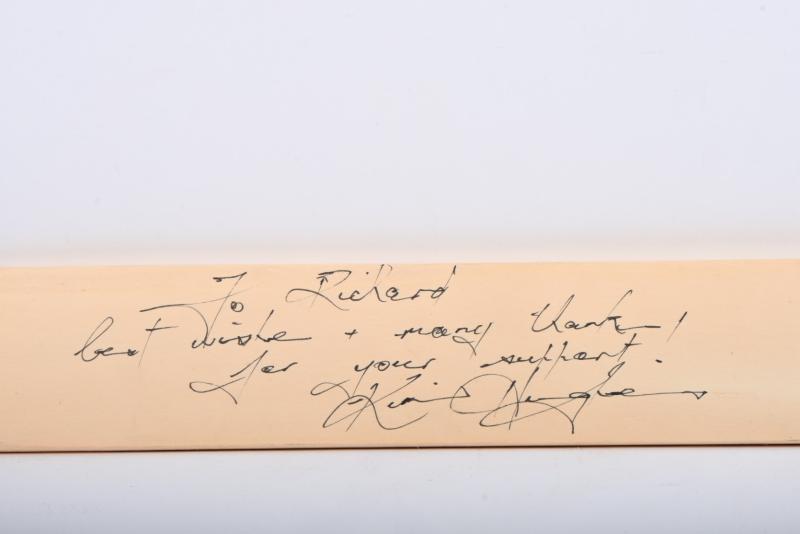 To Richard
best wishes + many thanks!
for your support!
Kim Hughes